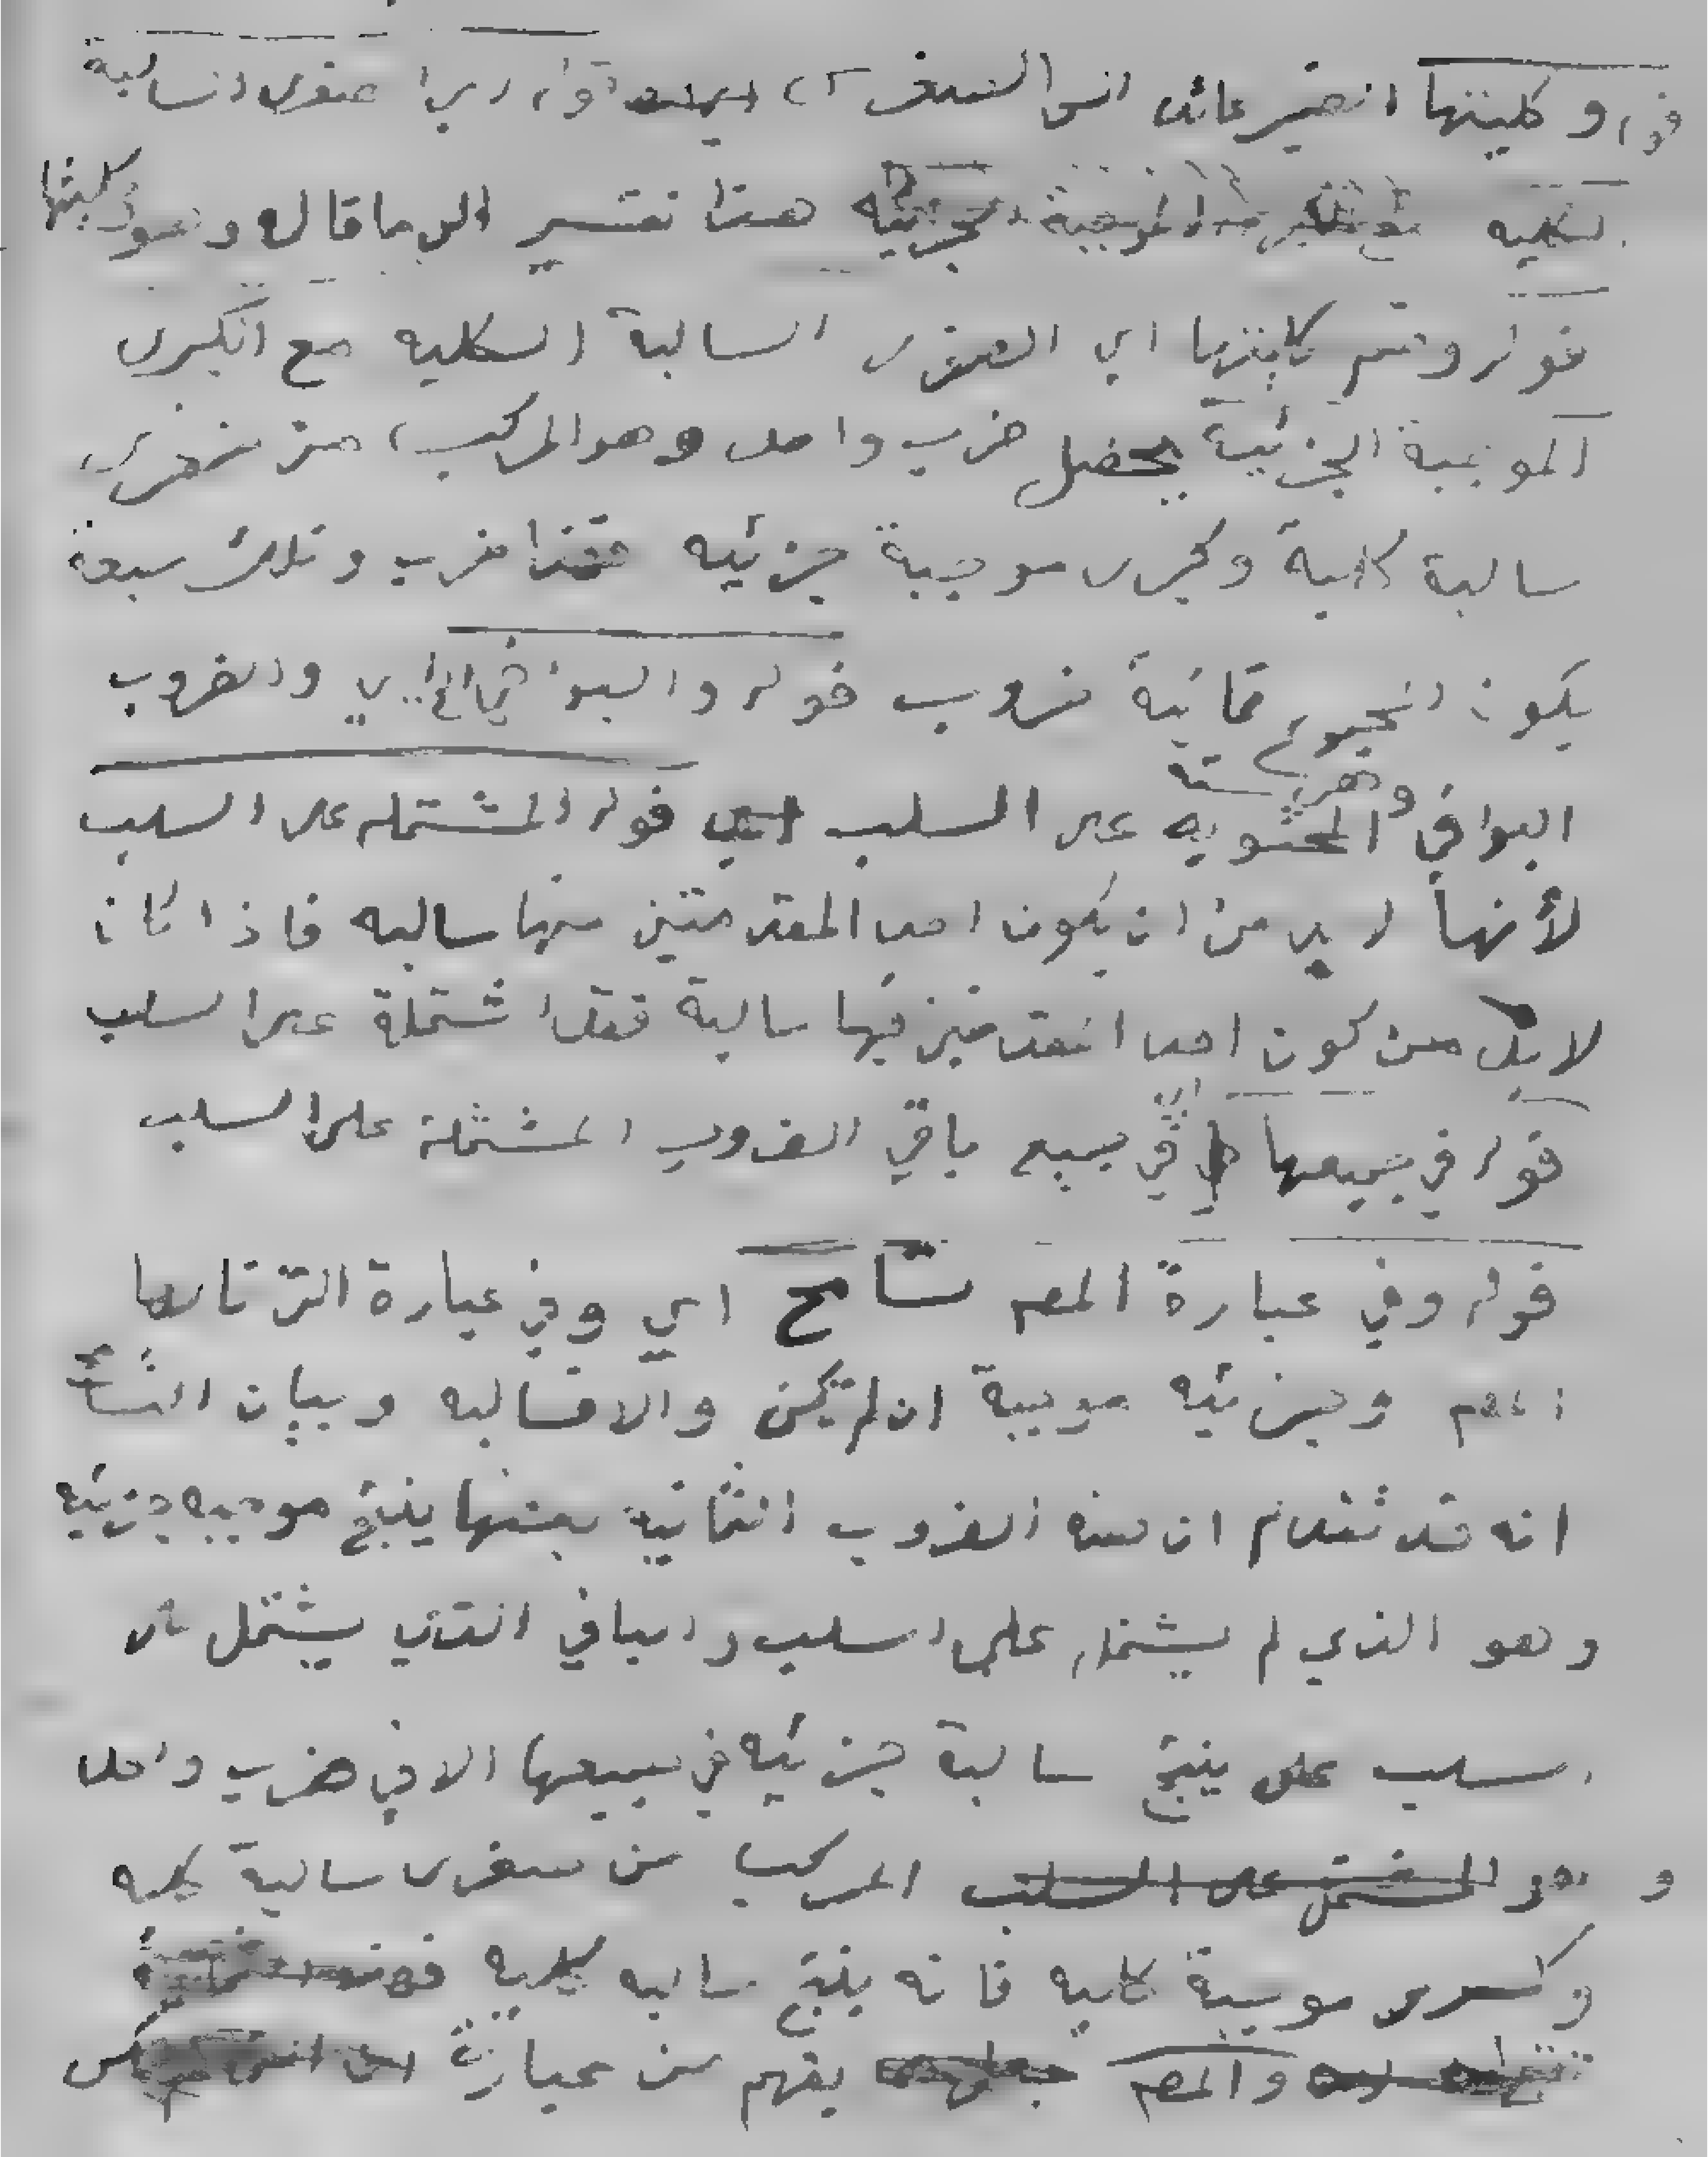 قوله وكليتها الضمير عائد الى الصغرى اي قوله اي الصغرى السالبة
الكلية مع الكبرى الموجبة الجزئية هذا تفسير الى ما قال وهو وكليتها
قوله وضم كليتها اي الصغرى السالبة الكلية مع الكبرى
الموجبة الجزئية يحصل ضرب واحد وهو المركب من صغرى
سالبة كلية وكبرى موجبة جزئيه فهذا ضرب وتلك سبعة
يكون المجموع ثمانية ضروب قوله والبواقي اي والضروب
البواقي وهي ستة المحتويه على السلب قوله المشتمله على السلب
لأنها لا بد من ان يكون احد المقدمتين منها سالبه فاذا كان
لا بد من كون احد المقدمتين فيها سالبة فقد اشتملة على السلب
قوله في جميعها اي في جميع باقي الضروب المشتملة على السلب
قوله وفي عبارة المصـ تسامح اي وفي عبارة التي قالها
المصـ وجزئيه موجبة ان لم يكن والا فسالبه وبيان التسامح
انه قد تقدم ان هذه الضروب الثمانية بعضها ينتج موجبه جزئيه
وهو الذي لم يشتمل على السلب والباقي الذي يشتمل على
السلب ينتج سالبة جزئيه في جميعها الا في ضرب واحد
وهو المشتمل على السلب المركب من صغرى سالبة كليه
وكبرى موجبة كليه فانه ينتج سالبه كليه
والمصـ يفهم من عبارة